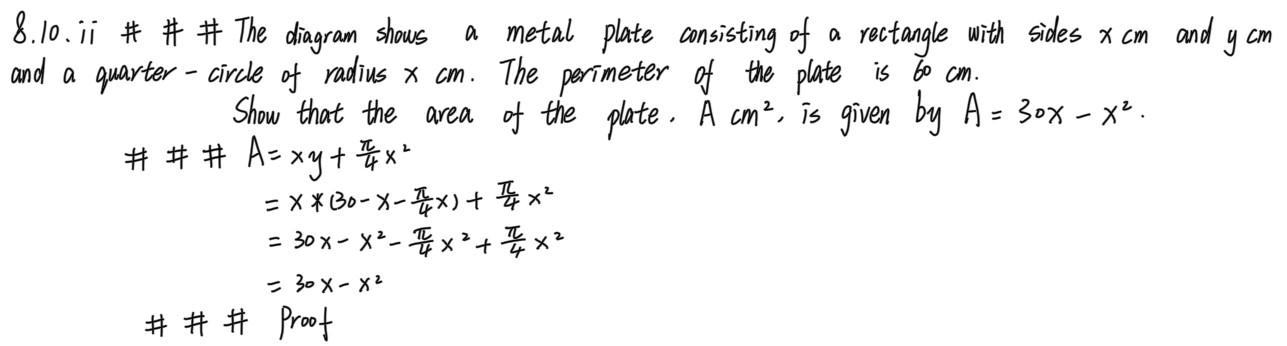 8.10.ii # # # The diagram shows a metal plate consisting of a rectangle with sides x cm and y cm
and a quarter - circle of radius x cm. The perimeter of the plate is 60 cm.
Show that the area of the plate, A cm², is given by A = 30x - x².
# # # A = xy + π/4 x²
= x * (30 - x - π/4 x) + π/4 x²
= 30x - x² - π/4 x² + π/4 x²
= 30x - x²
# # # Proof